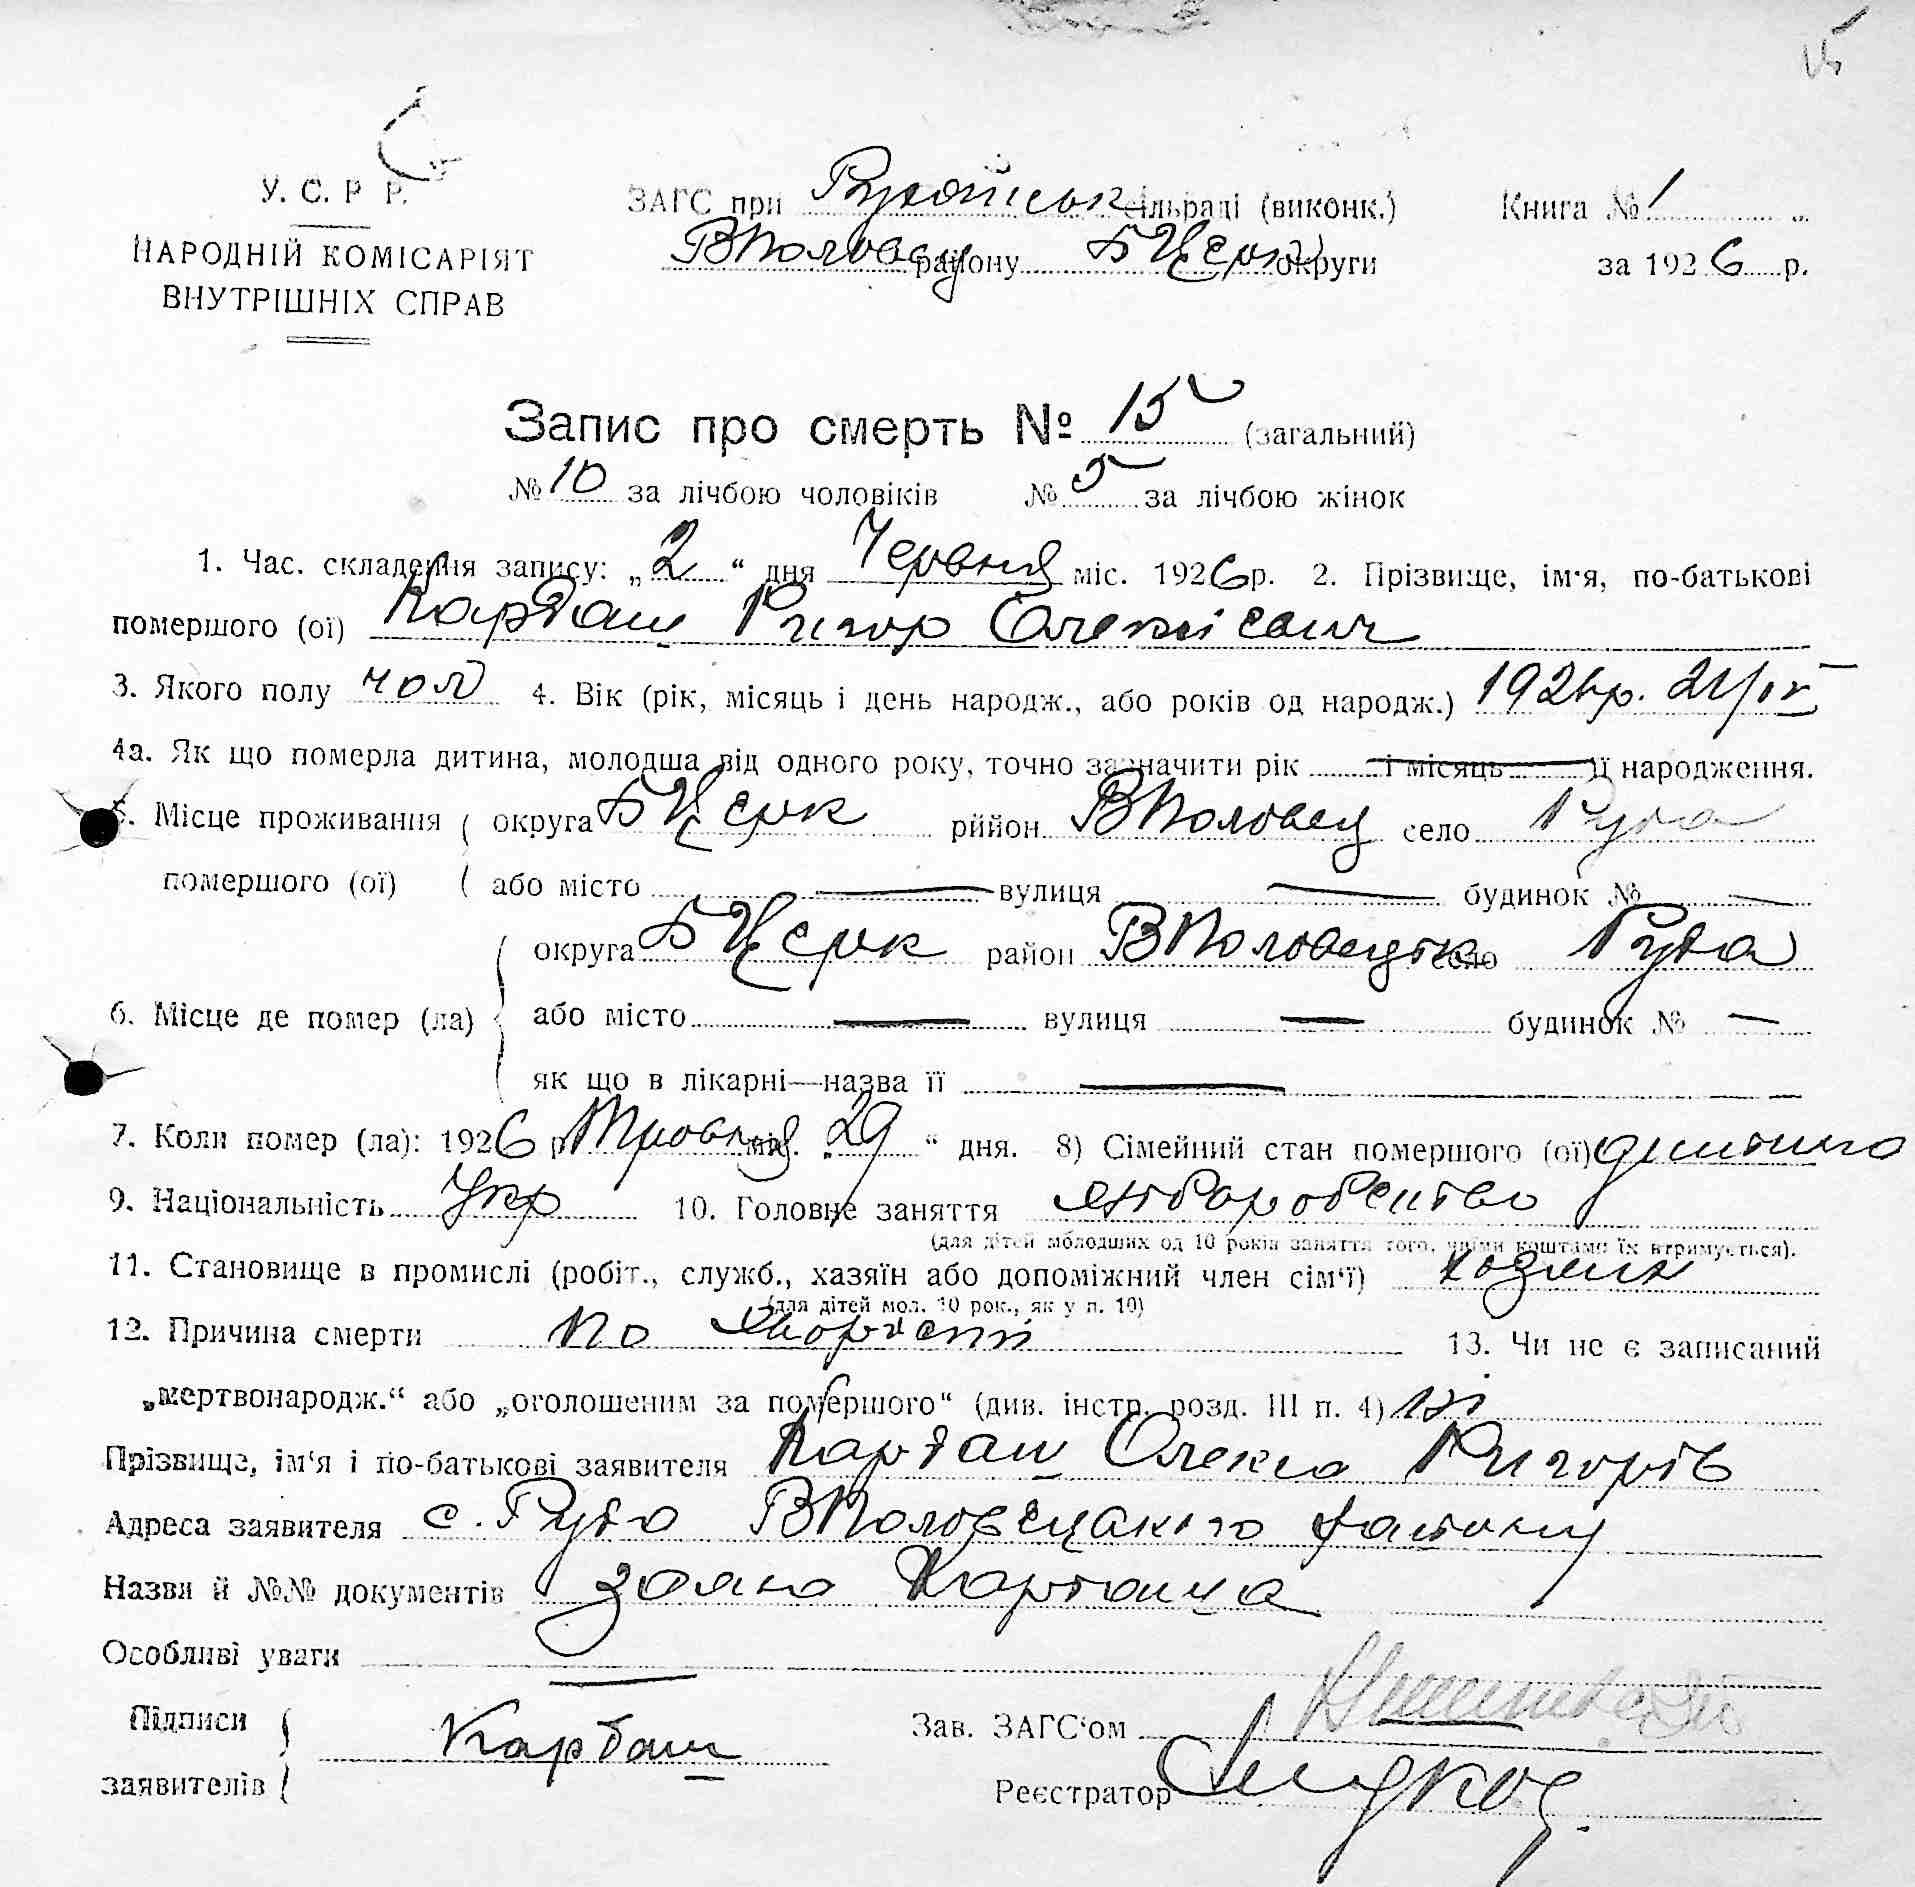 15
У. С. Р Р.
НАРОДНІЙ КОМІСАРІЯТ
ВНУТРІШНІХ СПРАВ
ЗАГС при Рудянськ сільраді (виконк.)
ВПоловец району БЦерк округи
Книга № 1
за 1926 р.
Запис про смерть № 15 (загальний)
№ 10 за лічбою чоловіків № 5 за лічбою жінок
1. Час. складення запису: „2“ дня Червня міс. 1926 р. 2. Прізвище, ім'я, по-батькові
помершого (ої) Кардаш Ригор Олексієвич
3. Якого полу чол 4. Вік (рік, місяць і день народж., або років од народж.)
4а. Як що померла дитина, молодша від одного року, точно зазначити рік і місяць її народження.
5. Місце проживання ( округа БЦерк рййон ВПоловец село Руда
помершого (ої) ( або місто — вулиця — будинок № —
округа БЦерк район ВПоловецьк село Руда
6. Місце де помер (ла) або місто — вулиця — будинок № —
як що в лікарні—назва її —
7. Коли помер (ла): 1926 р Травня міс. „29“ дня. 8) Сімейний стан помершого (ої) дитина
9. Національність Укр 10. Головне заняття хліборобство
(для дітей молодших од 10 років заняття того, чиїми коштами їх втримується).
11. Становище в промислі (робіт., служб., хазяїн або допоміжний член сім'ї)
(для дітей мол. 10 рок., як у п. 10)
12. Причина смерти по 13. Чи не є записаний
„мертвонародж.“ або „оголошеним за помершого“ (див. інстр. розд. III п. 4) ні
Прізвище, ім'я і по-батькові заявителя Кардаш Олекса Ригорів
Адреса заявителя с. Руда ВПоловецького району
Назви й №№ документів заява Кардаша
Особливі уваги —
Підписи
заявителів Кардаш
Зав. ЗАГС'ом
Реєстратор